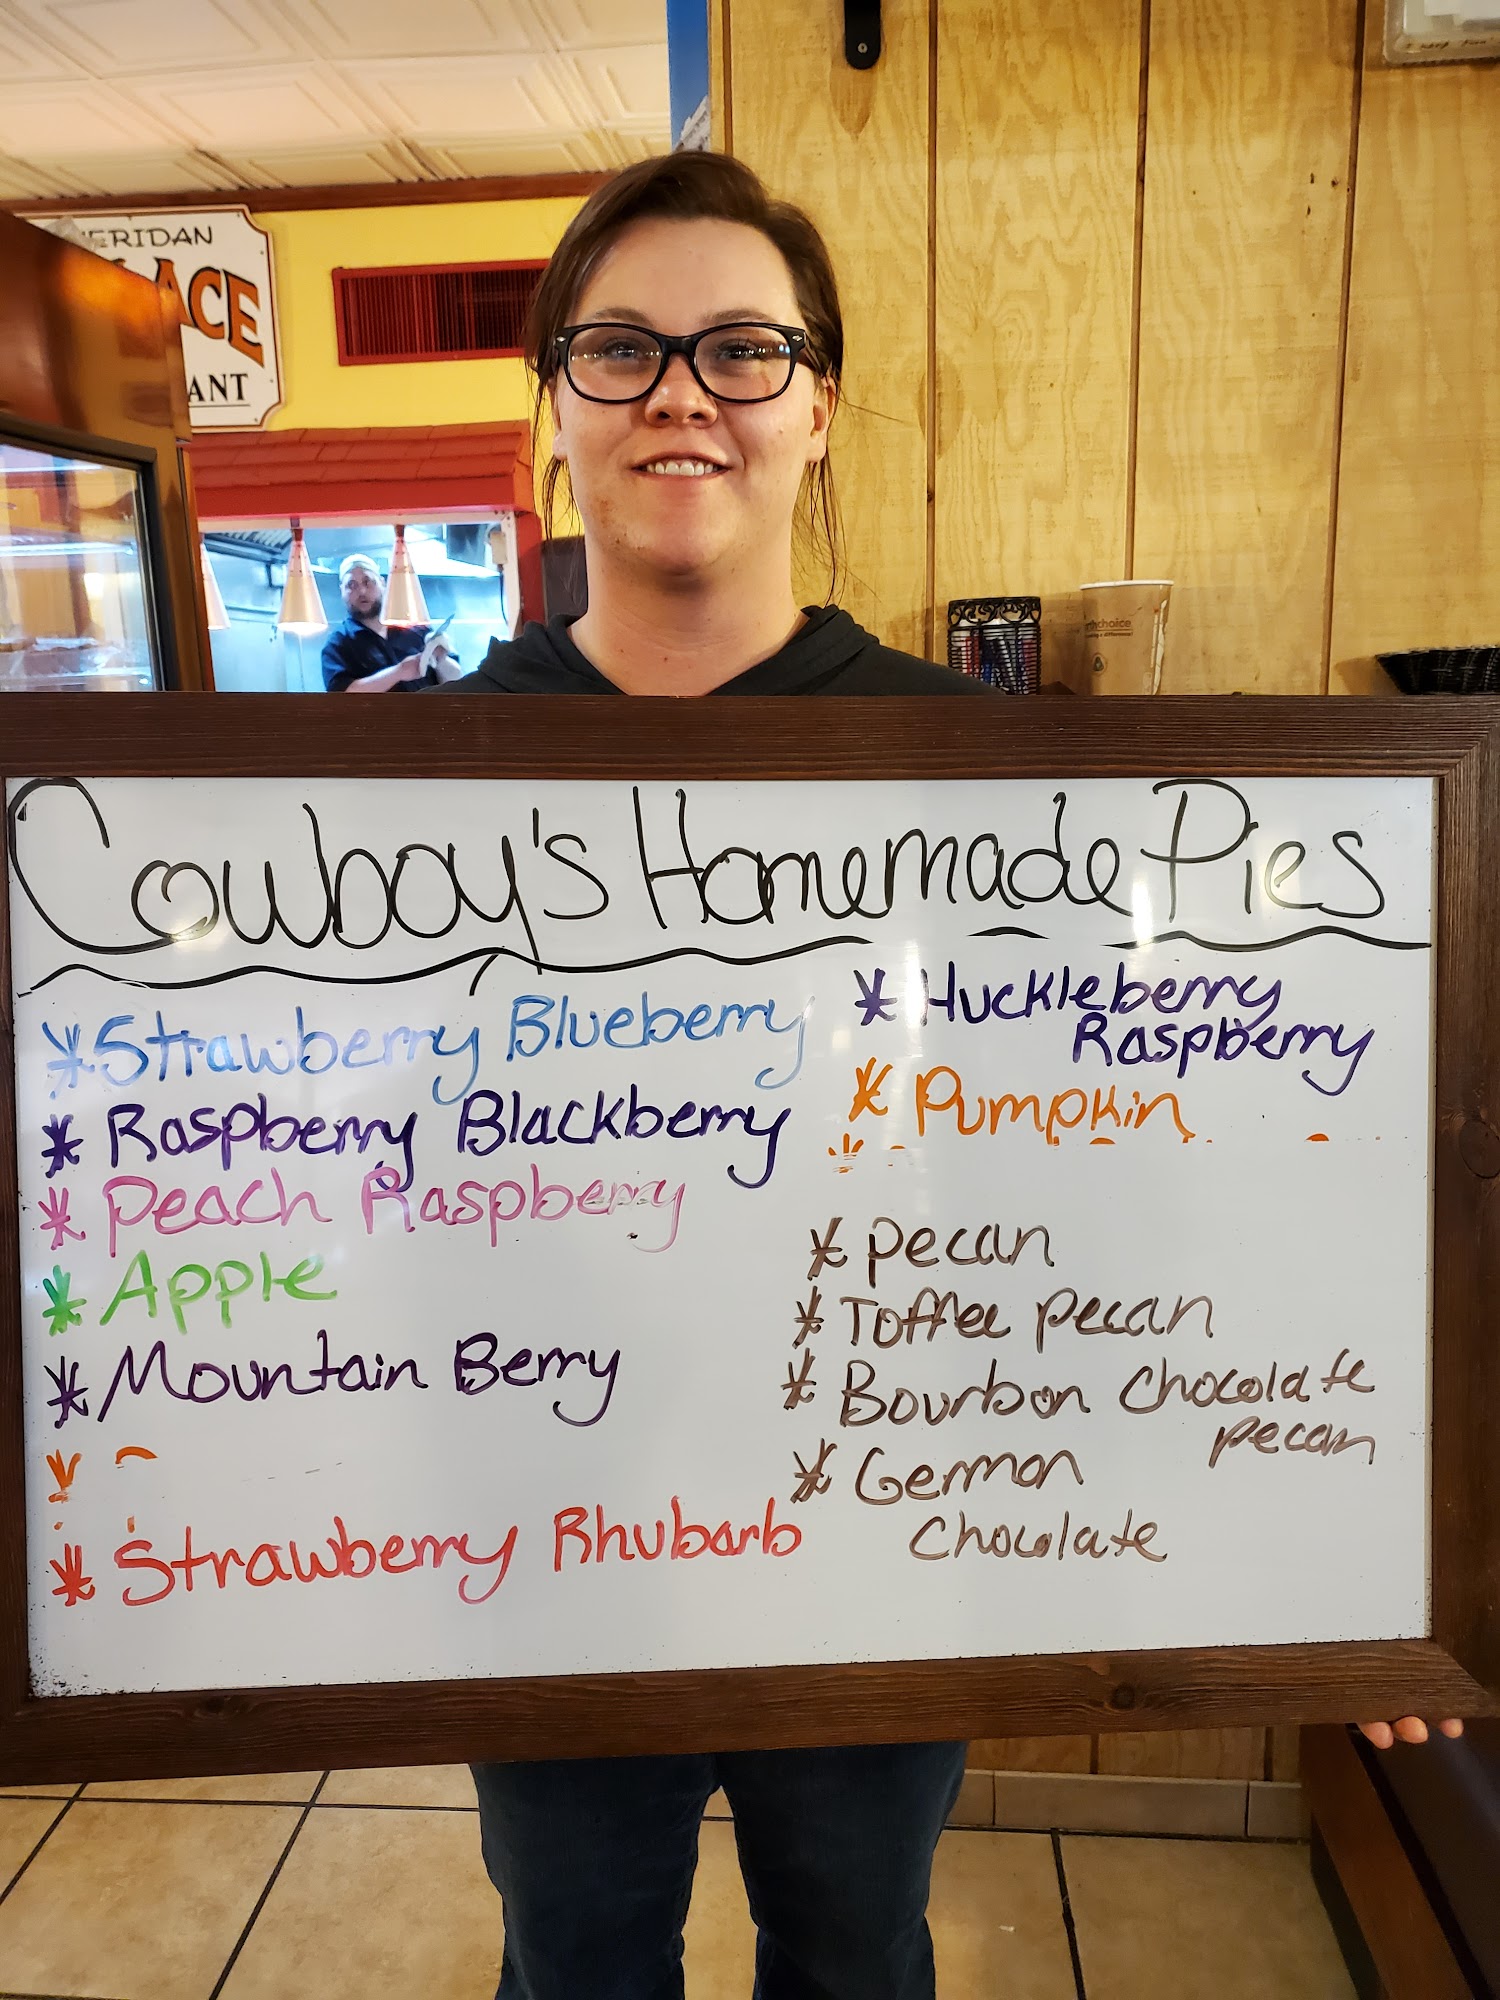 ERIDAN
ACE
ANT
Cowboy's Homemade Pies
* Strawberry Blueberry
* Raspberry Blackberry
* Peach Raspberry
* Apple
* Mountain Berry
* Strawberry Rhubarb
* Huckleberry
Raspberry
* Pumpkin
* Pecan
* Toffee Pecan
* Bourbon Chocolate
Pecan
* German
Chocolate